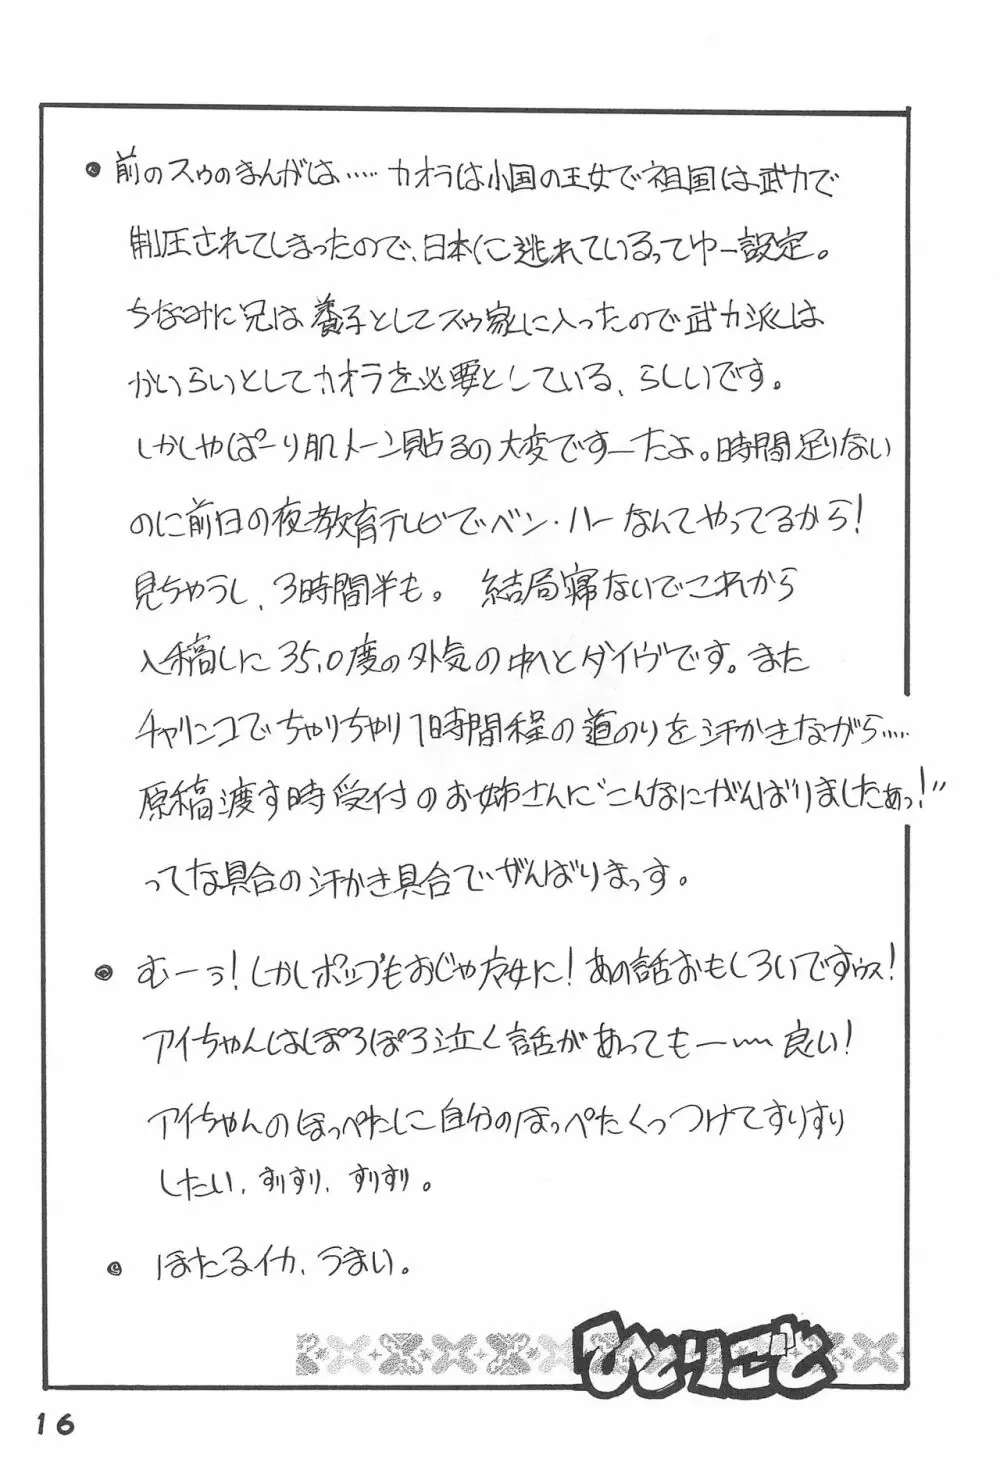 ・前のスゥのまんがは‥‥カオラは小国の王女で祖国は武力で
制圧されてしまったので、日本に逃れているってゆー設定。
ちなみに兄は養子としてスゥ家に入ったので武力派は
かいらいとしてカオラを必要としている、らしいです。
しかしやぱーり肌トーン貼るの大変ですーたよ。時間足りない
のに前日の夜教育テレビでベン・ハーなんてやってるから!
見ちゃうし、3時間半も。 結局寝ないでこれから
入稿しに35.0度の外気の中へとダイヴです。また
チャリンコでちゃりちゃり1時間程の道のりを汗かきながら‥‥
原稿渡す時受付のお姉さんに"こんなにがんばりましたぁっ!"
ってな具合の汗かき具合でがんばりまっす。
・むーぅ!しかしポップもおじゃ魔女に!あの話おもしろいですゥス!
アイちゃんはぽろぽろ泣く話があってもー〜〜良い!
アイちゃんのほっぺたに自分のほっぺたくっつけてすりすり
したい、すりすり、すりすり。
・ほたるイカ、うまい。
ひとりごと
16